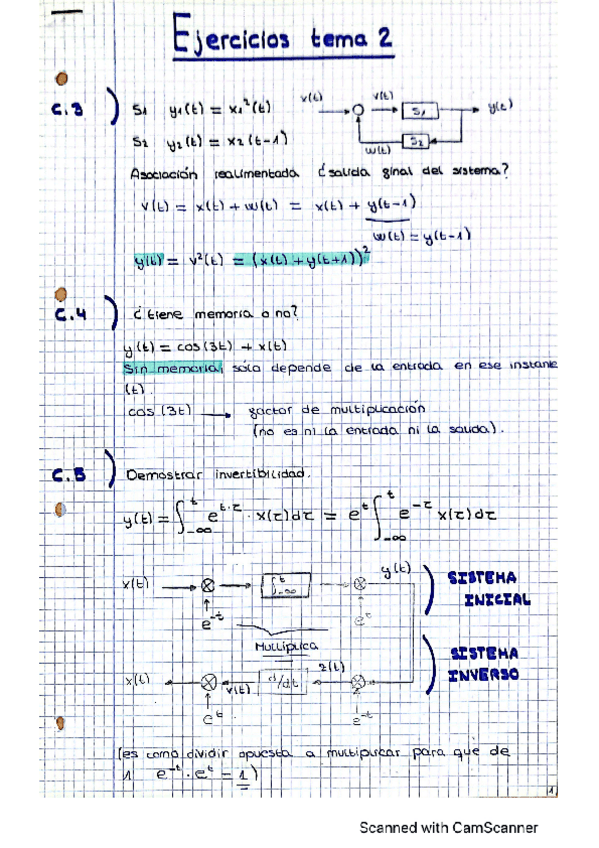 Ejercicios tema 2
C.3) S1 y1(t) = x1²(t)
x(t) v(t) S1 y(t)
S2 y2(t) = x2(t-1)
S2
w(t)
Asociación realimentada ¿salida final del sistema?
v(t) = x(t) + w(t) = x(t) + y(t-1)
w(t) = y(t-1)
y(t) = v²(t) = (x(t) + y(t+1))²
C.4) ¿tiene memoria o no?
y(t) = cos(3t) + x(t)
Sin memoria, sólo depende de la entrada en ese instante
(t).
cos(3t) → factor de multiplicación
(no es ni la entrada ni la salida).
C.5) Demostrar invertibilidad.
y(t) = ∫_{-∞}^{t} e^{t-τ} · x(τ)dτ = e^t ∫_{-∞}^{t} e^{-τ} x(τ)dτ
x(t) ⊗ ∫_{-∞}^{t} ⊗ y(t)
e^{-t} e^t
SISTEMA
INICIAL
Multiplica
SISTEMA
INVERSO
x(t) ⊗ v(t) d/dt z(t) ⊗
e^t e^{-t}
(es como dividir opuesta a multiplicar para que de
1 e^{-t} · e^t = 1)
1
Scanned with CamScanner